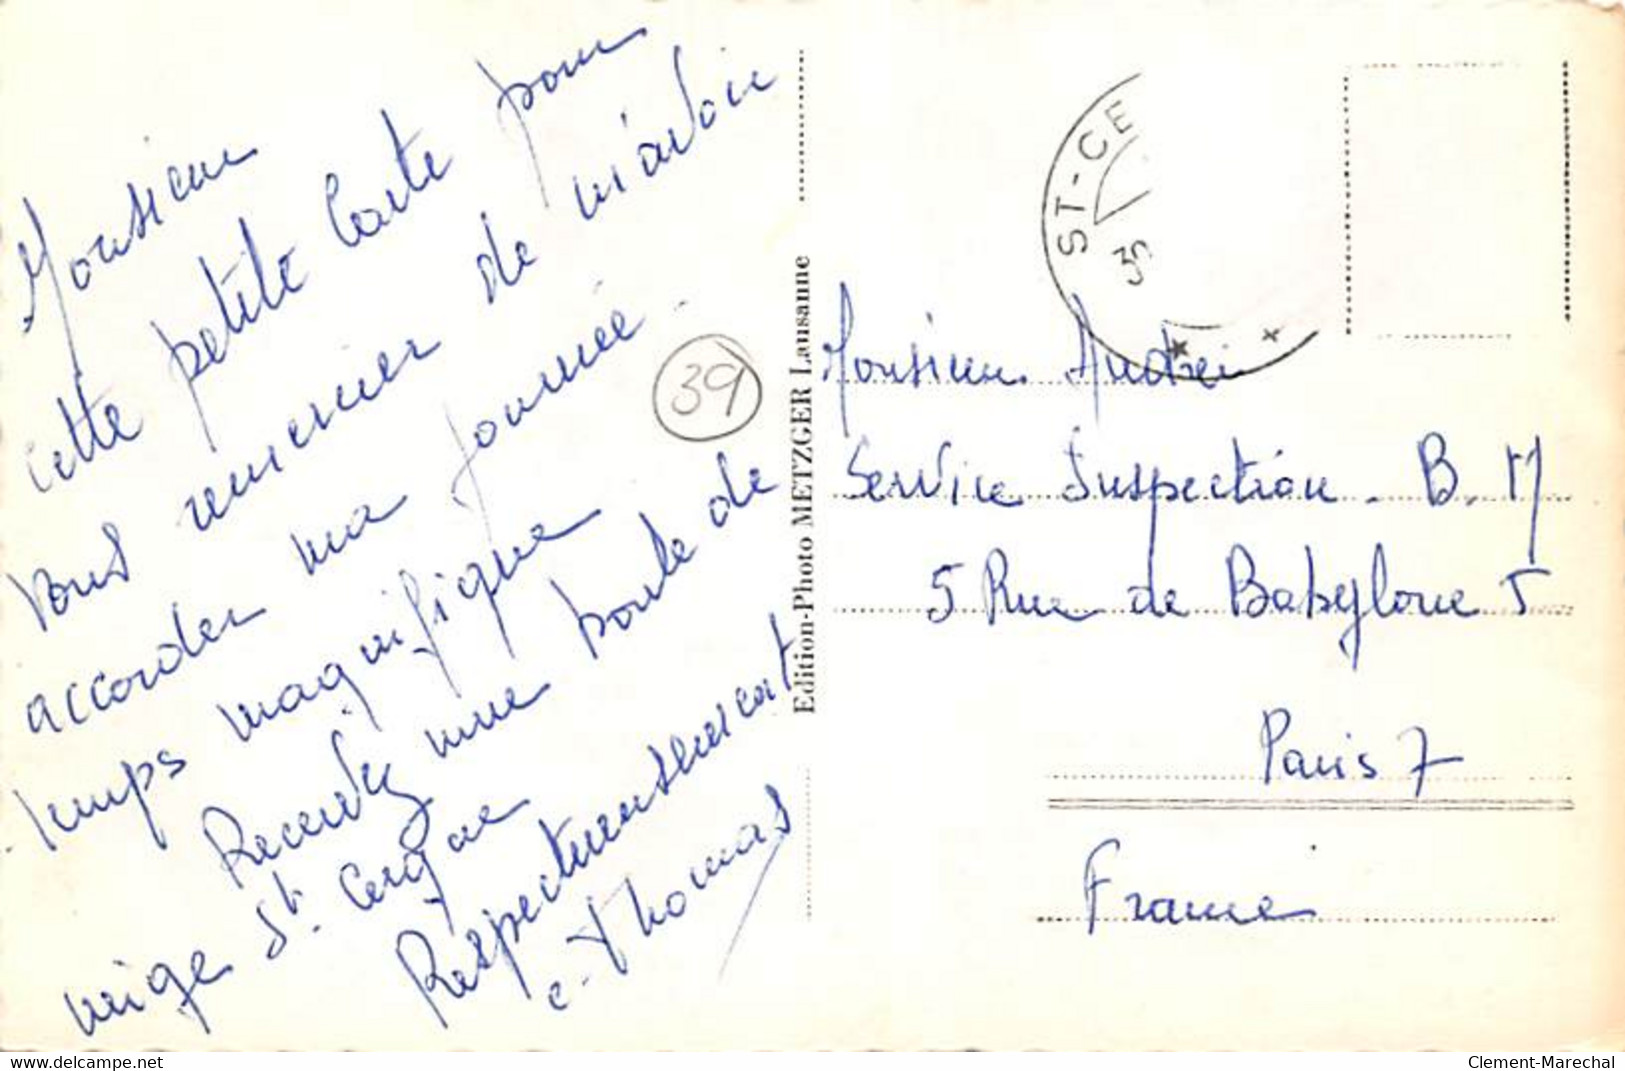 Monsieur
cette petite Carte pour
vous remercier de m'avoir
accorder ma journée.
temps magnifique
Recevez une boule de
neige St. Cergue
Respectueusement
c. Thomas
39
Edition-Photo METZGER Lausanne
ST-CE
Monsieur Andrei
Service Inspection - B. M
5 Rue de Babylone 5
Paris 7
France
delcampe.net
Clement-Marechal